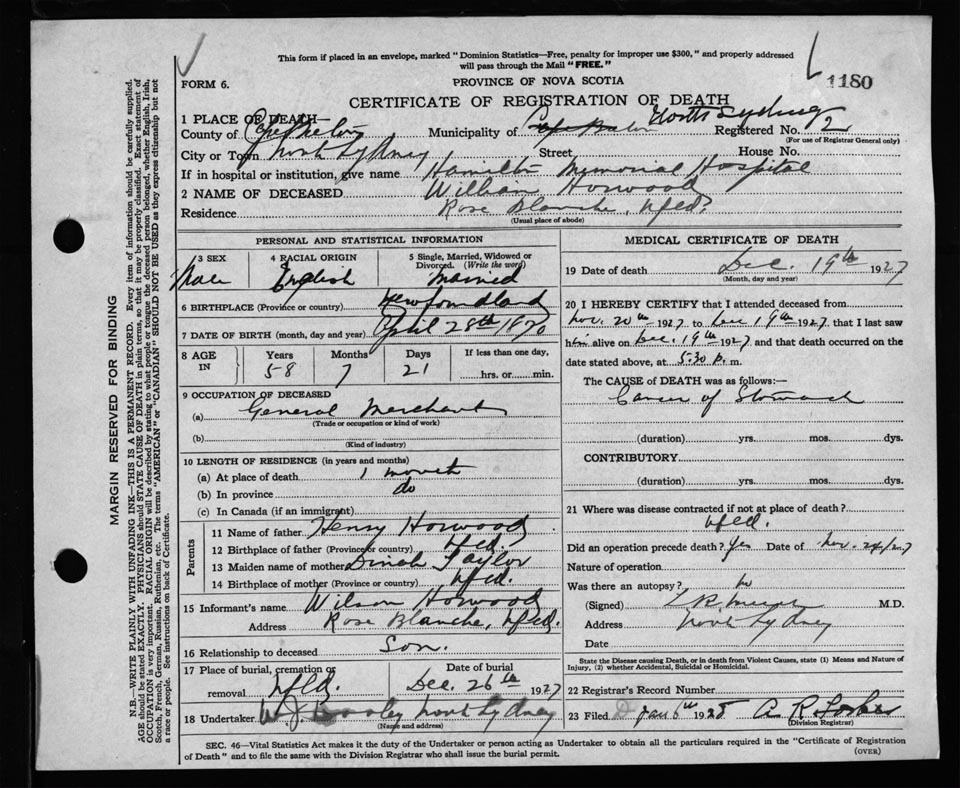 This form if placed in an envelope, marked "Dominion Statistics—Free, penalty for improper use $300," and properly addressed
will pass through the Mail "FREE."
FORM 6.
PROVINCE OF NOVA SCOTIA
1180
CERTIFICATE OF REGISTRATION OF DEATH
1 PLACE OF DEATH—
County of Cape Breton Municipality of Cape Breton North Sydney Registered No. 2
(For use of Registrar General only)
City or Town North Sydney Street House No.
If in hospital or institution, give name Hamilton Memorial Hospital
2 NAME OF DECEASED William Horwood
Residence Rose Blanche, Nfld.
(Usual place of abode)
PERSONAL AND STATISTICAL INFORMATION
3 SEX 4 RACIAL ORIGIN 5 Single, Married, Widowed or Divorced. (Write the word)
Male English Married
6 BIRTHPLACE (Province or country) Newfoundland
7 DATE OF BIRTH (month, day and year) April 28th 1870
8 AGE IN Years Months Days If less than one day,
58 7 21 hrs. or min.
9 OCCUPATION OF DECEASED
(a) General Merchant
(Trade or occupation or kind of work)
(b)
(Kind of industry)
10 LENGTH OF RESIDENCE (in years and months)
(a) At place of death 1 month
(b) In province do
(c) In Canada (if an immigrant)
Parents
11 Name of father Henry Horwood
12 Birthplace of father (Province or country) Nfld.
13 Maiden name of mother Dinah Taylor
14 Birthplace of mother (Province or country) Nfld.
15 Informant's name Wilson Horwood
Address Rose Blanche, Nfld.
16 Relationship to deceased Son.
17 Place of burial, cremation or removal Nfld. Date of burial Dec. 26th 1927
18 Undertaker W. J. North Sydney
(Name and address)
MEDICAL CERTIFICATE OF DEATH
19 Date of death Dec. 19th 1927
(Month, day and year)
20 I HEREBY CERTIFY that I attended deceased from
Nov. 20th 1927 to Dec 19th 1927, that I last saw
him alive on Dec. 19th 1927 and that death occurred on the
date stated above, at 5.30 p. m.
The CAUSE of DEATH was as follows:—
Cancer of Stomach
(duration) yrs. mos. dys.
CONTRIBUTORY
(duration) yrs. mos. dys.
21 Where was disease contracted if not at place of death?
Nfld.
Did an operation precede death? Yes Date of Nov. 24/27
Nature of operation
Was there an autopsy? no
(Signed) M.D.
Address North Sydney
Date
State the Disease causing Death, or in death from Violent Causes, state (1) Means and Nature of
Injury, (2) whether Accidental, Suicidal or Homicidal.
22 Registrar's Record Number
23 Filed Jan 6th 1928 A R
(Division Registrar)
SEC. 46—Vital Statistics Act makes it the duty of the Undertaker or person acting as Undertaker to obtain all the particulars required in the "Certificate of Registration
of Death" and to file the same with the Division Registrar who shall issue the burial permit.
(OVER)
MARGIN RESERVED FOR BINDING
N.B.—WRITE PLAINLY WITH UNFADING INK—THIS IS A PERMANENT RECORD. Every item of information should be carefully supplied.
AGE should be stated EXACTLY. PHYSICIANS should STATE CAUSE OF DEATH in plain terms, so that it may be properly classified. Exact statement of
OCCUPATION is very important. RACIAL ORIGIN will be described by stating to what people or tongue the deceased person belonged, whether English, Irish,
Scotch, French, German, Russian, Ruthenian, etc. The terms "AMERICAN" or "CANADIAN" SHOULD NOT BE USED as they express citizenship but not
a race or people. See instructions on back of Certificate.